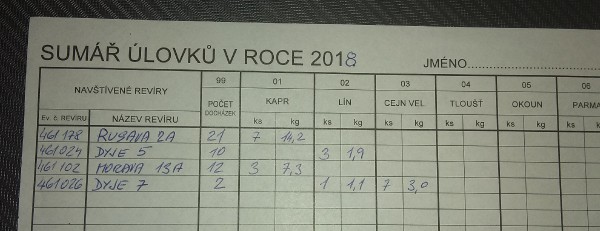 SUMÁŘ ÚLOVKŮ V ROCE 2018 JMÉNO
NAVŠTÍVENÉ REVÍRY 99 01 02 03 04 05 06
POČET DOCHÁZEK KAPR LÍN CEJN VEL. TLOUŠŤ OKOUN PARMA
Ev. č. REVÍRU NÁZEV REVÍRU ks kg ks kg ks kg ks kg ks kg ks
461 178 RUSAVA 2A 21 7 14,2
461 024 DYJE 5 10 3 1,9
461 102 MORAVA 13A 12 3 7,3
461 026 DYJE 7 2 1 1,1 7 3,0